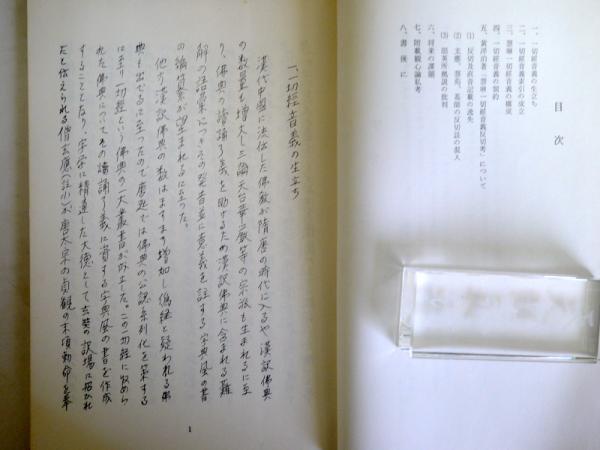 目次
一、一切経音義の生立ち
二、一切経音義索引の成立
三、慧琳一切経音義の構成
四、一切経音義の契約
五、黄淬伯著「慧琳一切経音義反切考」について
(1) 反切及直音記載の逸失
(2) 玄應、雲苑、基師の反切法の混入
(3) 部英所拠説の批判
六、将来の課題
七、附載観心論私考
八、書後に
一、一切経音義の生立ち
漢代中國に法伝した佛教が隋唐の時代に入るや漢訳佛典
の数量も増大し三論天台華厳等の宗派も生まれるに至
り、佛典の諳誦了義を助けるため漢訳佛典に含まれる難
解の註語彙につきその発音並に意義を註する字典風の書
の編纂が望まれるに至った。
他方漢訳佛典の数はますます増加し偽経と疑われる弟
典も出でるに至ったので唐廷では佛典の公認系列化を策する
に至り一切経という佛典の一大叢書が誕生した。この一切経に収めら
れた佛典についてその諳誦了義に資する字典風の書を作成
することとなり、字学に精達した大徳として玄奘の訳場に招かれ
たと伝えられる僧玄應(註小)が唐太宗の貞観の末頃勅命を奉
1